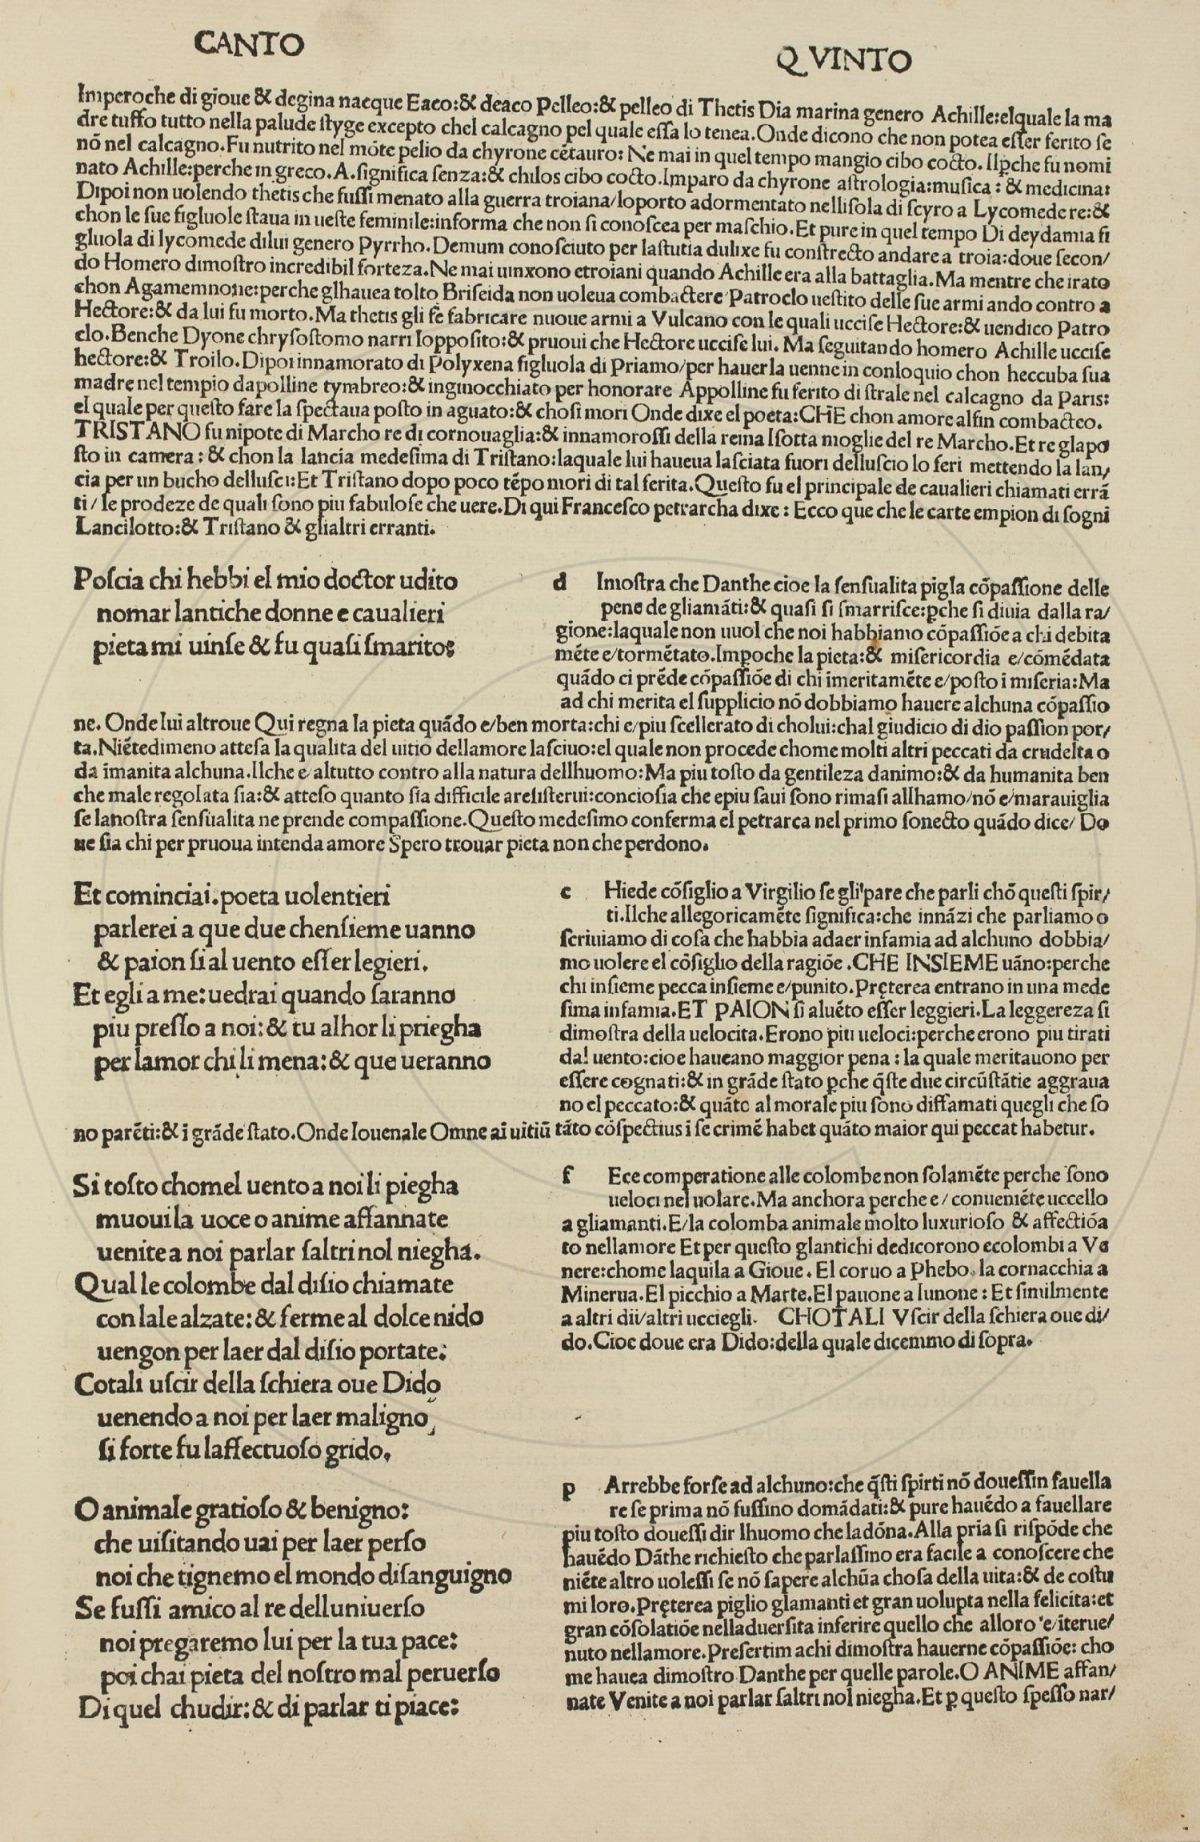 CANTO
QVINTO
Imperoche di gioue & degina nacque Eaco:& deaco Pelleo:& pelleo di Thetis Dia marina genero Achille:elquale la ma
dre tuffo tutto nella palude ſtyge excepto chel calcagno pel quale eſſa lo tenea.Onde dicono che non potea eſſer ferito ſe
nō nel calcagno.Fu nutrito nel mōte pelio da chyrone cētauro: Ne mai in quel tempo mangio cibo cocto.Ilꝑche fu nomi
nato Achille:perche in greco.A.ſignifica ſenza:& chilos cibo cocto.Imparo da chyrone aſtrologia:muſica:& medicina:
Dipoi non uolendo thetis che fuſſi menato alla guerra troiana/loporto adormentato nelliſola di ſcyro a Lycomede re:&
chon le ſue figluole ſtaua in ueſte feminile:informa che non ſi conoſcea per maſchio.Et pure in quel tempo Di deydamia fi
gluola di lycomede dilui genero Pyrrho.Demum conoſciuto per laſtutia dulixe fu conſtrecto andare a troia:doue ſecon/
do Homero dimoſtro incredibil forteza.Ne mai uinxono etroiani quando Achille era alla battaglia.Ma mentre che irato
chon Agamemnone:perche glhauea tolto Briſeida non uoleua combactere Patroclo ueſtito delle ſue armi ando contro a
Hectore:& da lui fu morto.Ma thetis gli fe fabricare nuoue armi a Vulcano con le quali ucciſe Hectore:& uendico Patro
clo.Benche Dyone chryſoſtomo narri loppoſito:& pruoui che Hectore ucciſe lui. Ma ſeguitando homero Achille ucciſe
hectore:& Troilo.Dipoi innamorato di Polyxena figluola di Priamo/per hauerla uenne in conloquio chon heccuba ſua
madre nel tempio dapolline tymbreo:& inginocchiato per honorare Appolline fu ferito di ſtrale nel calcagno da Paris:
el quale per queſto fare la ſpectaua poſto in aguato:& choſi mori Onde dixe el poeta:CHE chon amore alfin combacteo.
TRISTANO fu nipote di Marcho re di cornouaglia:& innamoroſſi della reina Iſotta moglie del re Marcho.Et re glapo
ſto in camera:& chon la lancia medeſima di Triſtano:laquale lui haueua laſciata fuori delluſcio lo feri mettendo la lan/
cia per un bucho delluſci:Et Triſtano dopo poco tēpo mori di tal ferita.Queſto fu el principale de caualieri chiamati errā
ti/le prodeze de quali ſono piu fabuloſe che uere.Di qui Franceſco petrarcha dixe: Ecco que che le carte empion di ſogni
Lancilotto:& Triſtano & glialtri erranti.
Poſcia chi hebbi el mio doctor udito
nomar lantiche donne e caualieri
pieta mi uinſe & fu quaſi ſmarito:
d Imoſtra che Danthe cioe la ſenſualita pigla cōpaſſione delle
pene de gliamāti:& quaſi ſi ſmarriſce:ꝑche ſi diuia dalla ra/
gione:laquale non uuol che noi habbiamo cōpaſſiōe a chi debita
mēte e/tormētato.Impoche la pieta:& miſericordia e/cōmēdata
quādo ci prēde cōpaſſiōe di chi imeritamēte e/poſto i miſeria:Ma
ad chi merita el ſupplicio nō dobbiamo hauere alchuna cōpaſſio
ne. Onde lui altroue Qui regna la pieta quādo e/ben morta:chi e/piu ſcellerato di cholui:chal giudicio di dio paſſion por/
ta.Niētedimeno atteſa la qualita del uitio dellamore laſciuo:el quale non procede chome molti altri peccati da crudelta o
da īmanita alchuna.Ilche e altutto contro alla natura dellhuomo:Ma piu toſto da gentileza danimo:& da humanita ben
che male regolata ſia:& atteſo quanto ſia difficile areſiſterui:concioſia che epiu ſaui ſono rimaſi allhamo/nō e/marauiglia
ſe lanoſtra ſenſualita ne prende compaſſione.Queſto medeſimo conferma el petrarca nel primo ſonecto quādo dice/ Do
ue ſia chi per pruoua intenda amore Spero trouar pieta non che perdono.
Et cominciai.poeta uolentieri
parlerei a que due chenſieme uanno
& paion ſi al uento eſſer legieri.
Et egli a me:uedrai quando ſaranno
piu preſſo a noi:& tu alhor li priegha
per lamor chi li mena:& que ueranno
c Hiede cōſiglio a Virgilio ſe gli pare che parli chō queſti ſpir/
ti.Ilche allegoricamēte ſignifica:che innāzi che parliamo o
ſcriuiamo di coſa che habbia adaer infamia ad alchuno dobbia/
mo uolere el cōſiglio della ragiōe.CHE INSIEME uāno:perche
chi inſieme pecca inſieme e/punito.Pręterea entrano in una mede
ſima infamia.ET PAION ſi aluēto eſſer leggieri.La leggereza ſi
dimoſtra della uelocita.Erono piu ueloci:perche erono piu tirati
dal uento:cioe haueano maggior pena:la quale meritauono per
eſſere cognati:& in grāde ſtato ꝑche q̄ſte due circūſtātie aggraua
no el peccato:& quāto al morale piu ſono diffamati quegli che ſo
no parēti:& ī grāde ſtato.Onde Iouenale Omne aī uitiū tāto cōſpectius ī ſe crimē habet quāto maior qui peccat habetur.
Si toſto chomel uento a noi li piegha
muoui la uoce o anime affannate
uenite a noi parlar ſaltri nol niegha.
Qual le colombe dal diſio chiamate
con lale alzate:& ferme al dolce nido
uengon per laer dal diſio portate:
Cotali uſcir della ſchiera oue Dido
uenendo a noi per laer maligno
ſi forte fu laffectuoſo grido.
f Ece comperatione alle colombe non ſolamēte perche ſono
ueloci nel uolare.Ma anchora perche e/conueniēte uccello
a gliamanti.E/la colomba animale molto luxurioſo & affectiōa
to nellamore Et per queſto glantichi dedicorono ecolombi a Ve
nere:chome laquila a Gioue.El coruo a Phebo.la cornacchia a
Minerua.El picchio a Marte.El pauone a Iunone:Et ſimilmente
a altri dii/altri ucciegli. CHOTALI Vſcir della ſchiera oue di/
do.Cioe doue era Dido:della quale dicemmo di ſopra.
O animale gratioſo & benigno:
che uiſitando uai per laer perſo
noi che tignemo el mondo diſanguigno
Se fuſſi amico al re delluniuerſo
noi pregaremo lui per la tua pace:
poi chai pieta del noſtro mal peruerſo
Di quel chudir:& di parlar ti piace:
p Arrebbe forſe ad alchuno:che q̄ſti ſpirti nō doueſſin fauella
re ſe prima nō fuſſino domādati:& pure hauēdo a fauellare
piu toſto doueſſi dir lhuomo che la dōna.Alla pria ſi riſpōde che
hauēdo Dāthe richieſto che parlaſſino era facile a conoſcere che
niēte altro uoleſſi ſe nō ſapere alchūa choſa della uita:& de coſtu
mi loro.Pręterea piglio glamanti et gran uolupta nella felicita:et
gran cōſolatiōe nelladuerſita inferire quello che alloro e/iterue/
nuto nellamore.Preſertim a chi dimoſtra hauerne cōpaſſiōe: cho
me hauea dimoſtro Danthe per quelle parole.O ANIME affan/
nate Venite a noi parlar ſaltri nol niegha.Et ꝑ queſto ſpeſſo nar/